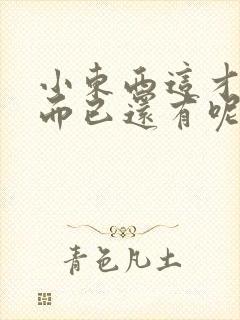 小東西這才
而已還有呢
青色凡土